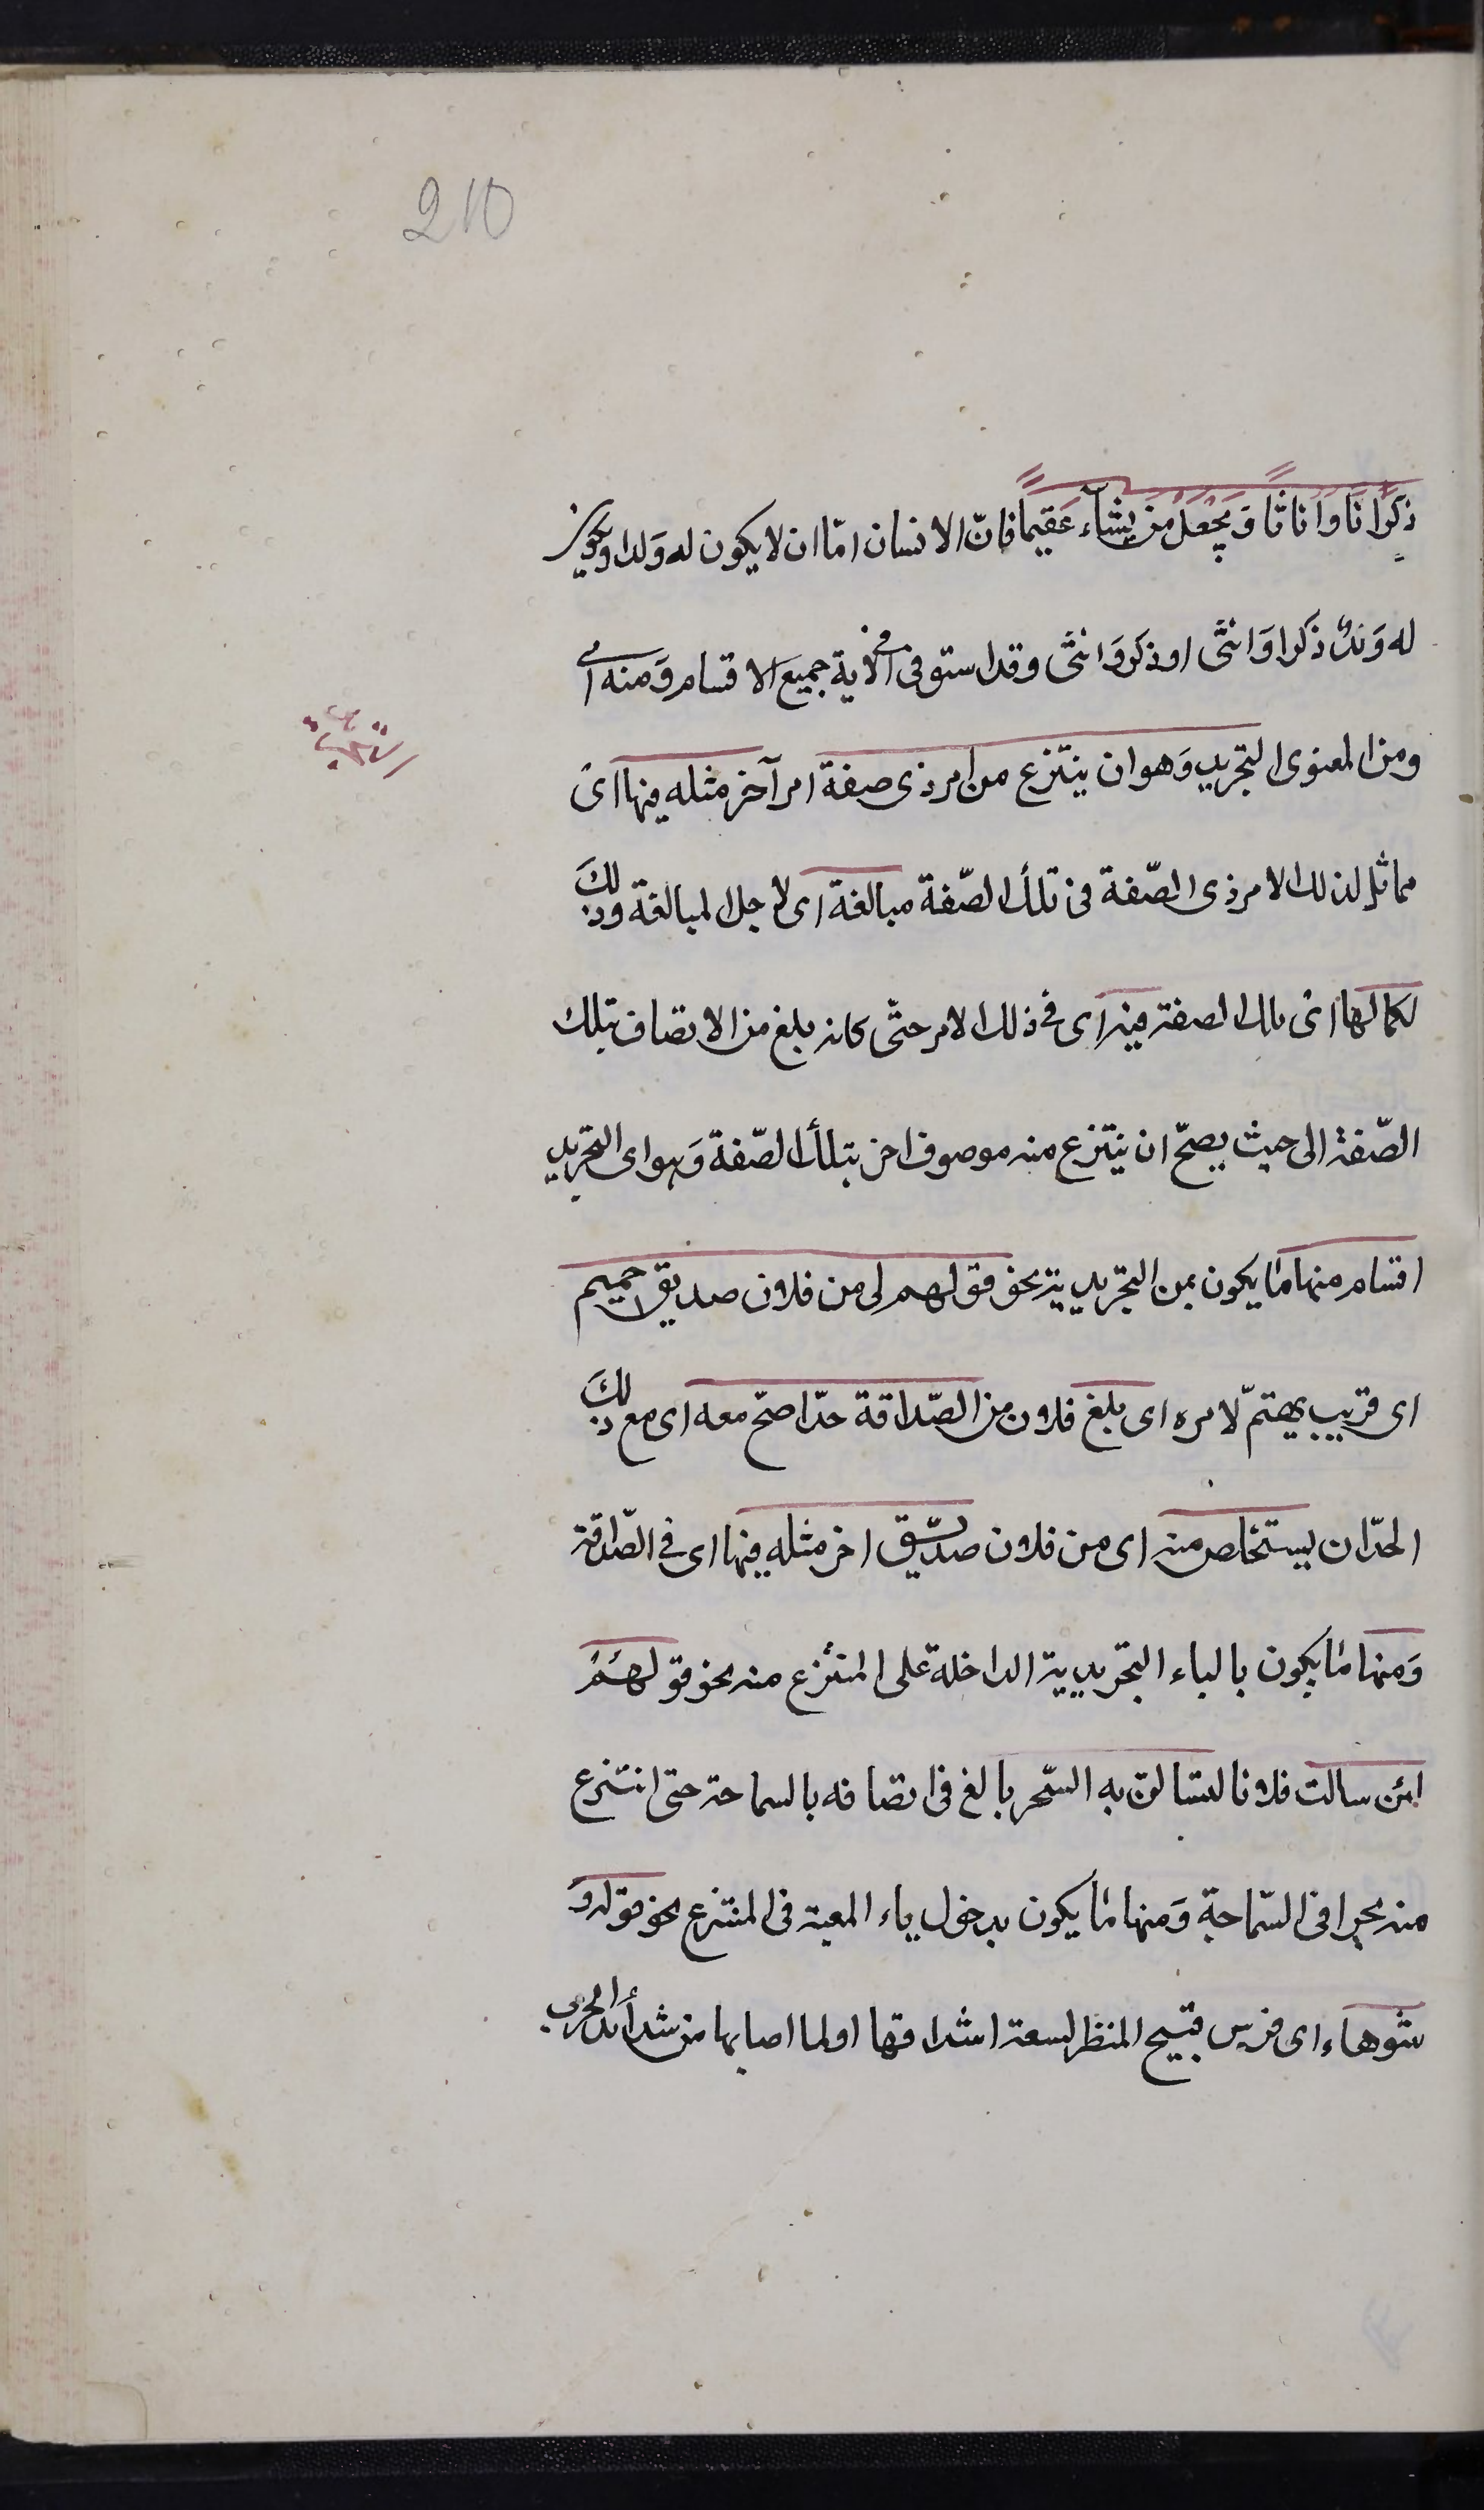 210
ذكرَانًا وَاِنَاثًا وَيَجْعَلُ مَنْ يشآء عَقيمًا فانّ الانسان امّا ان لا يكون له وَلد او يكون
له وَلدٌ ذكر اوَ انثى او ذكر وَانثى وقد استوفى فى الاية جميع الاقسام وَمنه اى
ومن المعنوى التجريد وَهو ان ينتزع من امر ذى صفة امر آخر مثله فيها اى
مماثل لذلك الامر ذى الصّفة فى تلك الصّفة مبالغة اى لاجل المبالغة وذلكَ
لكمالها اى تلك الصفة فيه اى فى ذلك الامر حتّى كانه بلغ من الاتصاف بتلك
الصّفة الى حيث يصحّ ان ينتزع منه موصوف اخر بتلك الصّفة وَهو اى التجريد
اقسام منها ما يكون بمن التجريدية نحو قولهم لى من فلان صديق حميم
اى قريب يهتمّ لامره اى بلغ فلان من الصّداقة حدّا صحّ معه اى مع ذلكَ
الحدّ ان يستخلص منه اى من فلان صدّيق اخر مثله فيها اى فى الصّداقة
وَمنها ما يكون بالباء التجريدية الداخلة على المنتزع منه نحو قولهم
لئن سالت فلانا لتسالنّ به البحر بالغ فى اتصافه بالسماحة حتى انتزع
منه بحرا فى السّماحة وَمنها ما يكون بدخول باء المعية فى المنتزع نحو قوله وَ
شوهاء اى فرس قبيح المنظر لسعة اشداقها او لما اصابها من شدائد الحرب
التجريد